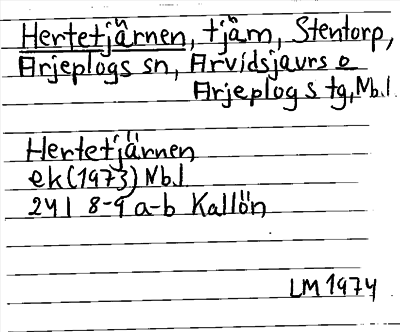 Hertetjärnen, tjäm, Stentorp,
Arjeplogs sn, Arvidsjaurs o
Arjeplogs tg, Nb.l.
Hertetjärnen
ek (1973) Nb.l
24 I 8-9 a-b Kallön
LM 1974